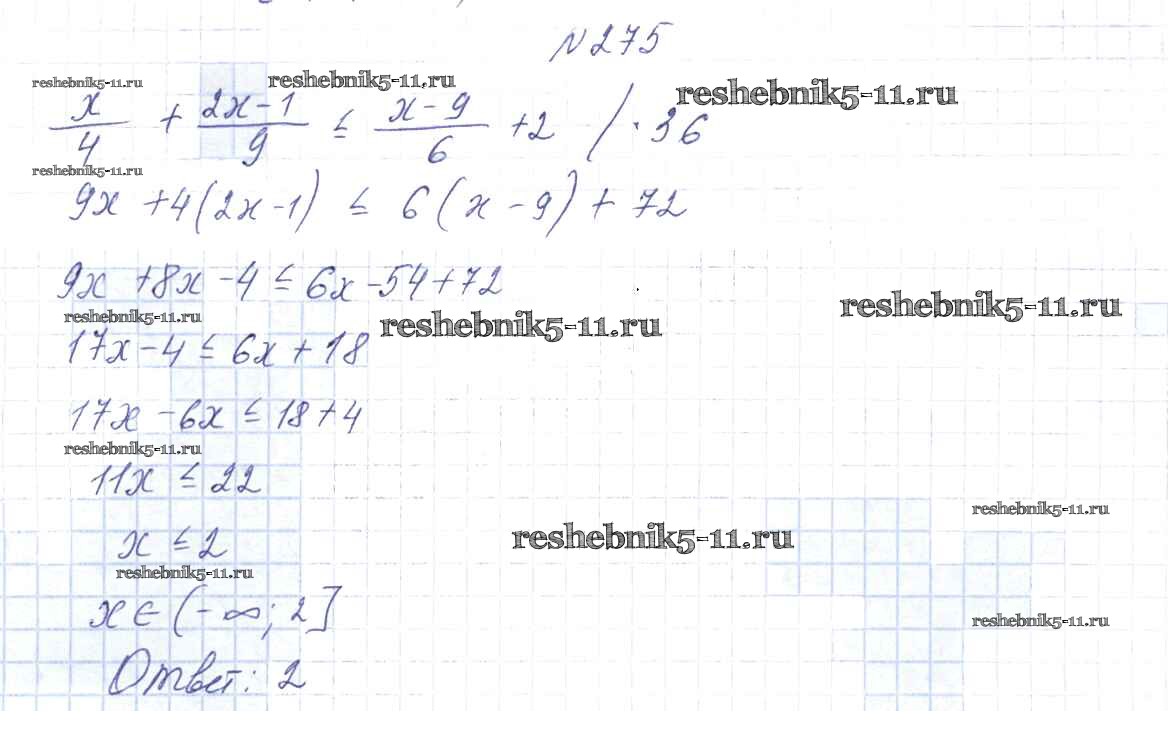 № 275
reshebnik5-11.ru reshebnik5-11.ru reshebnik5-11.ru
x/4 + (2x-1)/9 ≤ (x-9)/6 +2 / · 36
reshebnik5-11.ru
9x +4(2x-1) ≤ 6(x-9) + 72
9x +8x -4 ≤ 6x -54+72
reshebnik5-11.ru reshebnik5-11.ru reshebnik5-11.ru
17x-4 ≤ 6x + 18
17x -6x ≤ 18+4
reshebnik5-11.ru
11x ≤ 22
reshebnik5-11.ru
x ≤ 2 reshebnik5-11.ru
reshebnik5-11.ru
x ∈ (- ∞; 2]
reshebnik5-11.ru
Ответ: 2